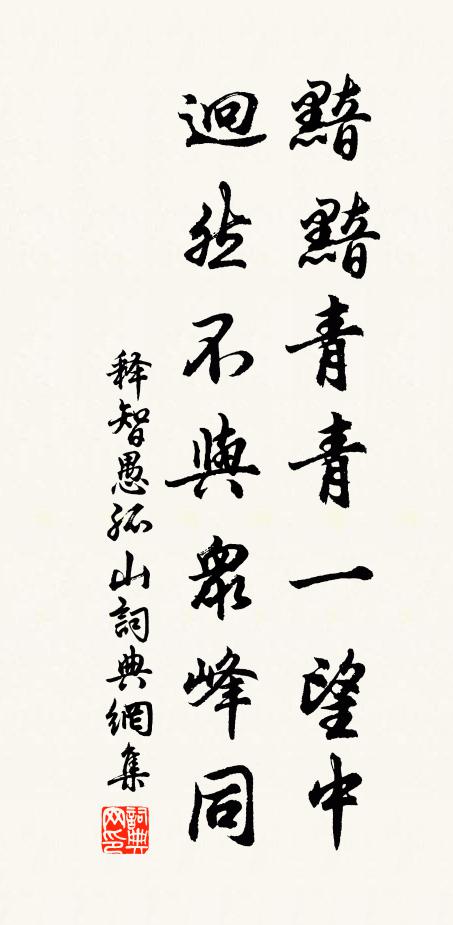 黯黯青青一望中
迥然不與眾峰同
释智愚孤山詞典網集
詞典网印